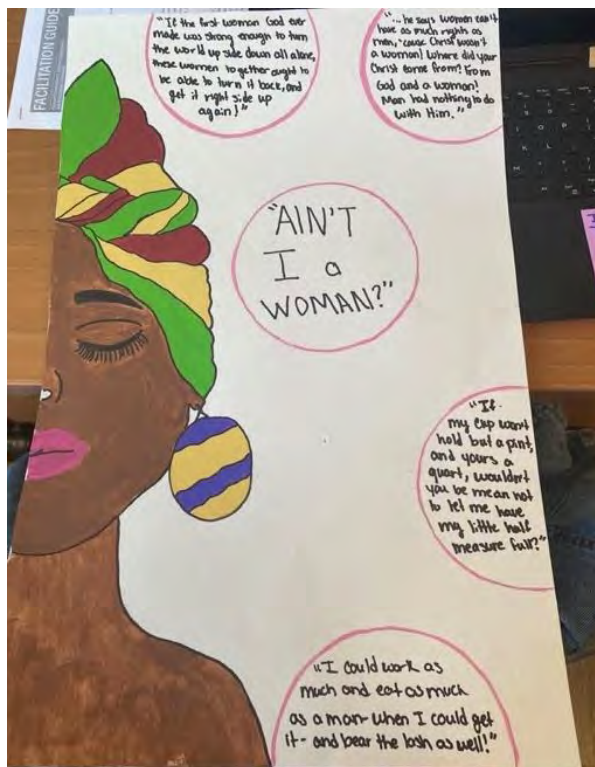 FACILITATION GUIDE
"If the first woman God ever
made was strong enough to turn
the world up side down all alone,
these women together ought to
be able to turn it back, and
get it right side up
again!"
"... he says women can't
have as much rights as
men, 'cause Christ wasn't
a woman! Where did your
Christ come from? From
God and a woman!
Man had nothing to do
with Him."
"AIN'T
I a
WOMAN?"
"If
my cup won't
hold but a pint,
and yours a
quart, wouldn't
you be mean not
to let me have
my little half
measure full?"
"I could work as
much and eat as much
as a man- when I could get
it- and bear the lash as well!"